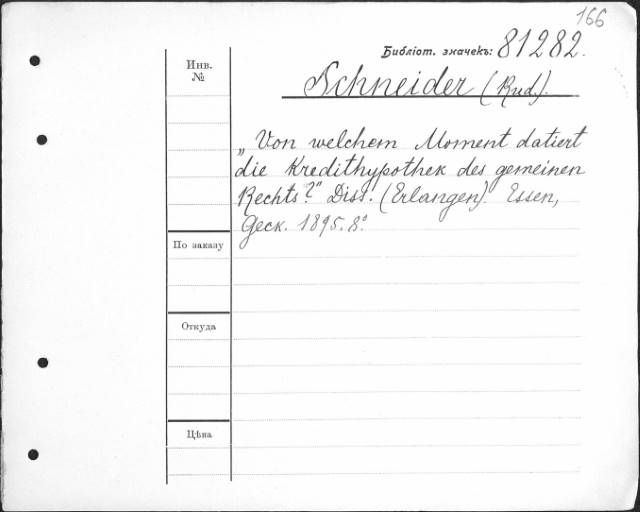 166
Библіот. значекъ: 81282.
Инв.
№
Schneider (Rud.).
„Von welchem Moment datiert
die Kredithypothek des gemeinen
Rechts?" Diss. (Erlangen). Essen,
Geck. 1895. 8°
По заказу
Откуда
Цѣна